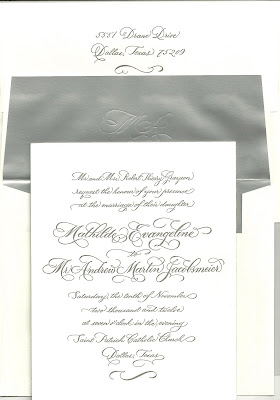 5551 Drane Drive
Dallas, Texas 75209
Mr. and Mrs. Robert Henry Grayson
request the honour of your presence
at the marriage of their daughter
Mathilde Evangeline
to
Mr. Andrew Martin Jacobsmeier
Saturday, the tenth of November
two thousand and twelve
at seven o'clock in the evening
Saint Patrick Catholic Church
Dallas, Texas